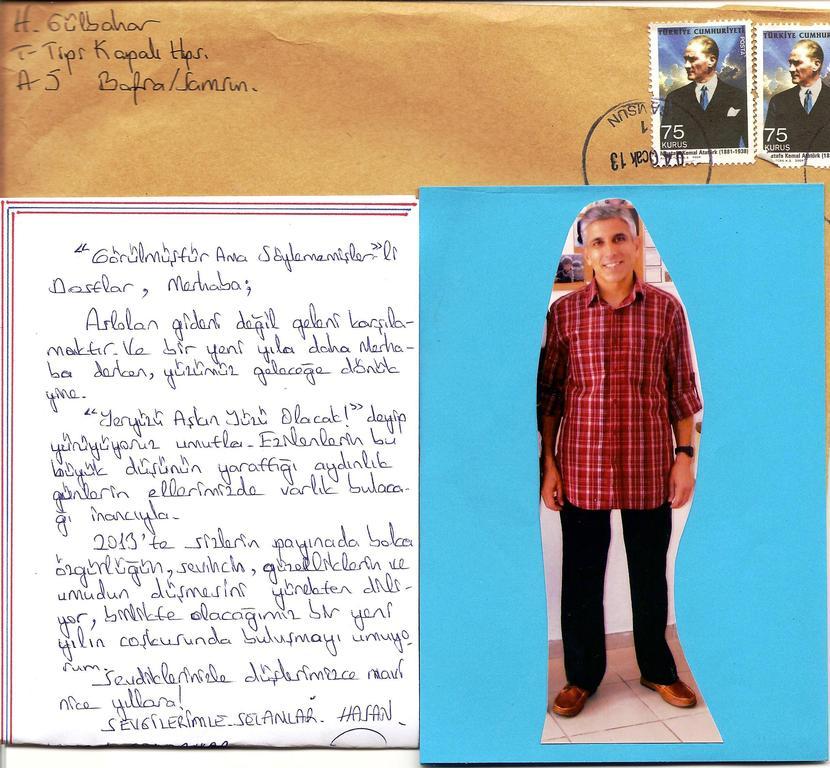 H. Gülbahar
T-Tipi Kapalı Hps.
A-5 Bafra/Samsun.
TÜRKİYE CUMHURİYETİ
POSTA
75
KURUŞ
Mustafa Kemal Atatürk (1881-1938)
TÜRKİYE CUMHUR
75
KURUŞ
Kemal Atatürk (1881-1938)
SAMSUN
1
04 Ocak 13
"Görülmüştür Ama Söylenmemişler"li
Dostlar, Merhaba;
Aslolan gideni değil geleni karşıla-
maktır. Ve bir yeni yıla daha Merha-
ba derken, yüzümüz geleceğe dönük
yine.
"Yeryüzü Aşkın Yüzü Olacak!" deyip
yürüyoruz umutla. Ezilenlerin bu
büyük düşünün yarattığı aydınlık
günlerin ellerimizde varlık bulaca-
ğı inancıyla.
2013'te sizlerin payınada bolca
özgürlüğün, sevincin, güzelliklerin ve
umudun düşmesini yürekten dili-
yor, birlikte olacağımız bir yeni
yılın coşkusunda buluşmayı umuyo-
rum.
Sevdiklerinizle düşlerimizce mavi
nice yıllara!
SEVGİLERİMLE-SELAMLAR. HASAN.